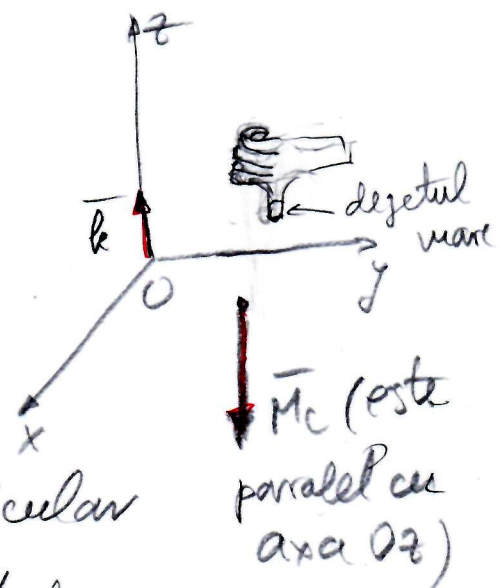 z
k̄
degetul
mare
O
y
x
M̄c (este
paralel cu
axa Oz)
cular